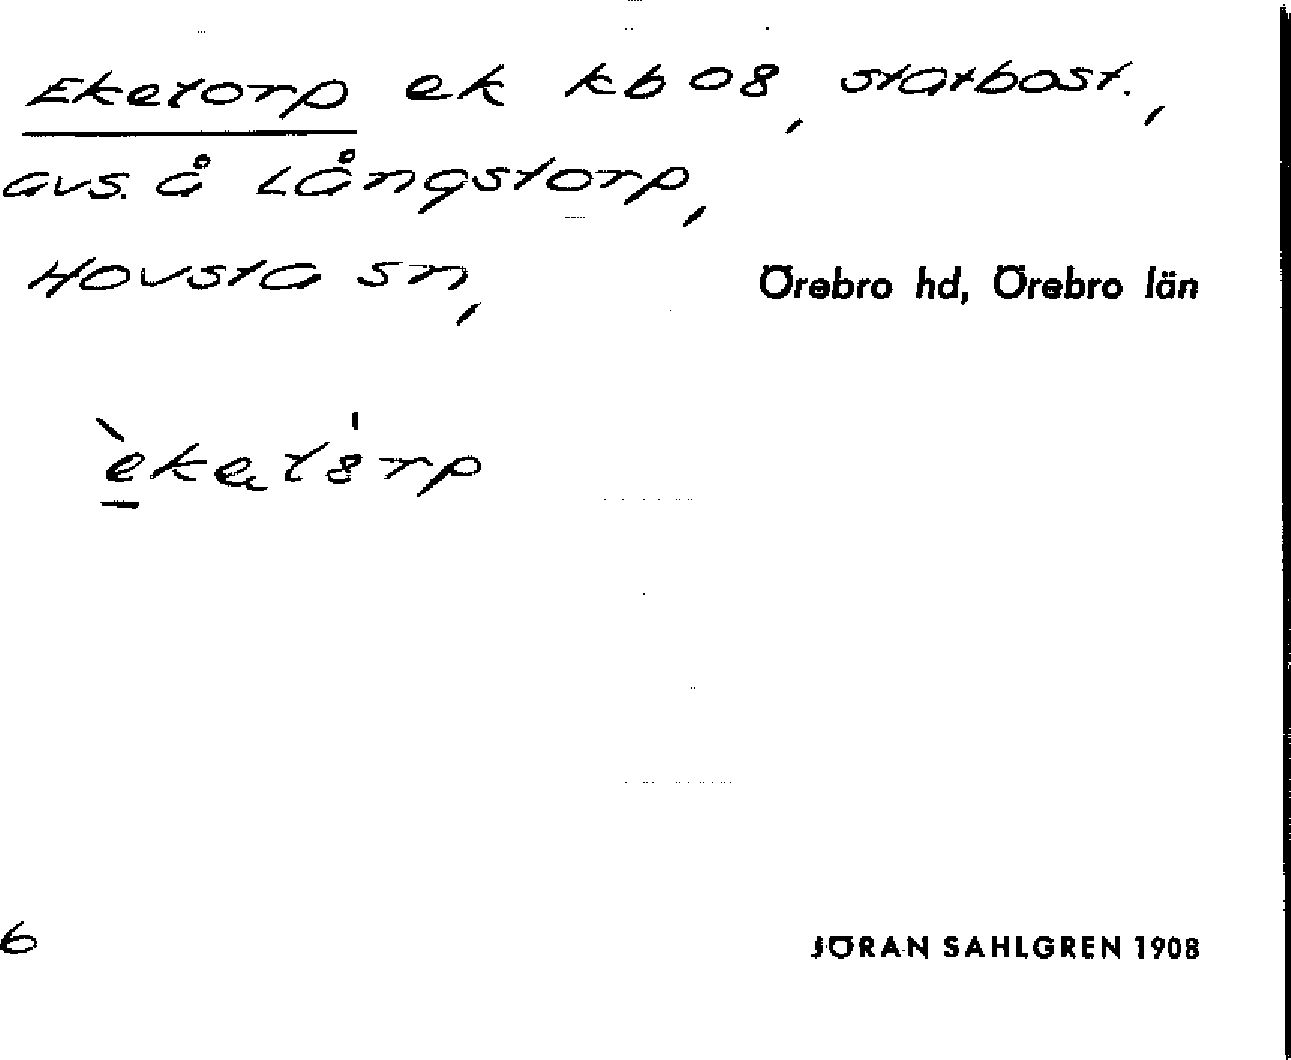 Eketorp ek kb 08, statbost.,
avs. å Långstorp,
Hovsta sn, Örebro hd, Örebro län
èke̢tȣ́rp
6 JÖRAN SAHLGREN 1908